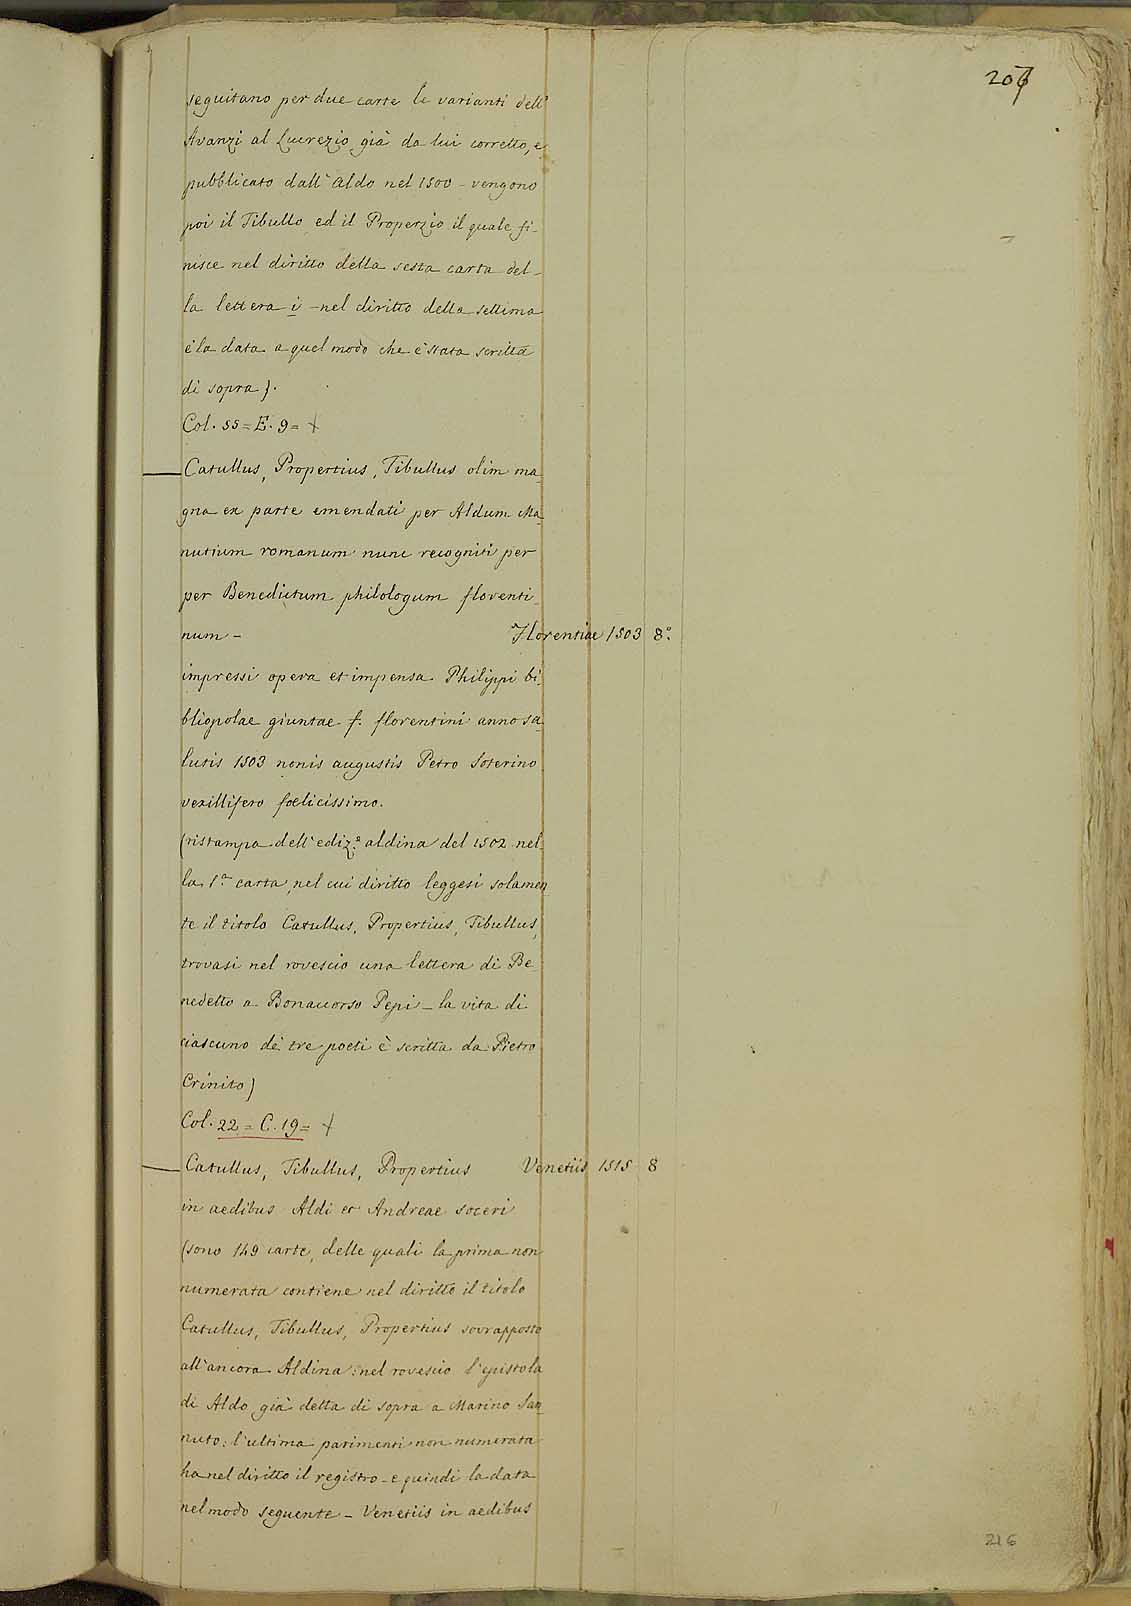 207
seguitano per due carte le varianti dell'
Avanzi al Lucrezio già da lui corretto, e
pubblicato dall'Aldo nel 1500 - vengono
poi il Tibullo ed il Properzio il quale fi-
nisce nel diritto della sesta carta del-
la lettera i - nel diritto della settima
è la data a quel modo che è stata scritta
di sopra).
Col. 55 = E. 9 =
— Catullus, Propertius, Tibullus olim ma-
gna ex parte emendati per Aldum Ma-
nutium romanum nunc recogniti per
per Benedictum philologum florenti-
num - Florentiae 1503 8.°
impressi opera et impensa Philippi bi-
bliopolae giuntae f. florentini anno sa-
lutis 1503 nonis augustis Petro Soterino
vexillifero foelicissimo.
(ristampa dell'ediz.e aldina del 1502 nel-
la 1.a carta, nel cui diritto leggesi solamen
te il titolo Catullus, Propertius, Tibullus,
trovasi nel rovescio una lettera di Be-
nedetto a Bonaccorso Pepi - la vita di
ciascuno de' tre poeti è scritta da Pietro
Crinito)
Col. 22 = C. 19 =
— Catullus, Tibullus, Propertius Venetiis 1515 8
in aedibus Aldi et Andreae soceri
(sono 149 carte, delle quali la prima non
numerata contiene nel diritto il titolo
Catullus, Tibullus, Propertius sovrapposto
all'ancora Aldina: nel rovescio l'epistola
di Aldo già detta di sopra a Marino San-
nuto: l'ultima parimenti non numerata
ha nel diritto il registro - e quindi la data
nel modo seguente - Venetiis in aedibus
216